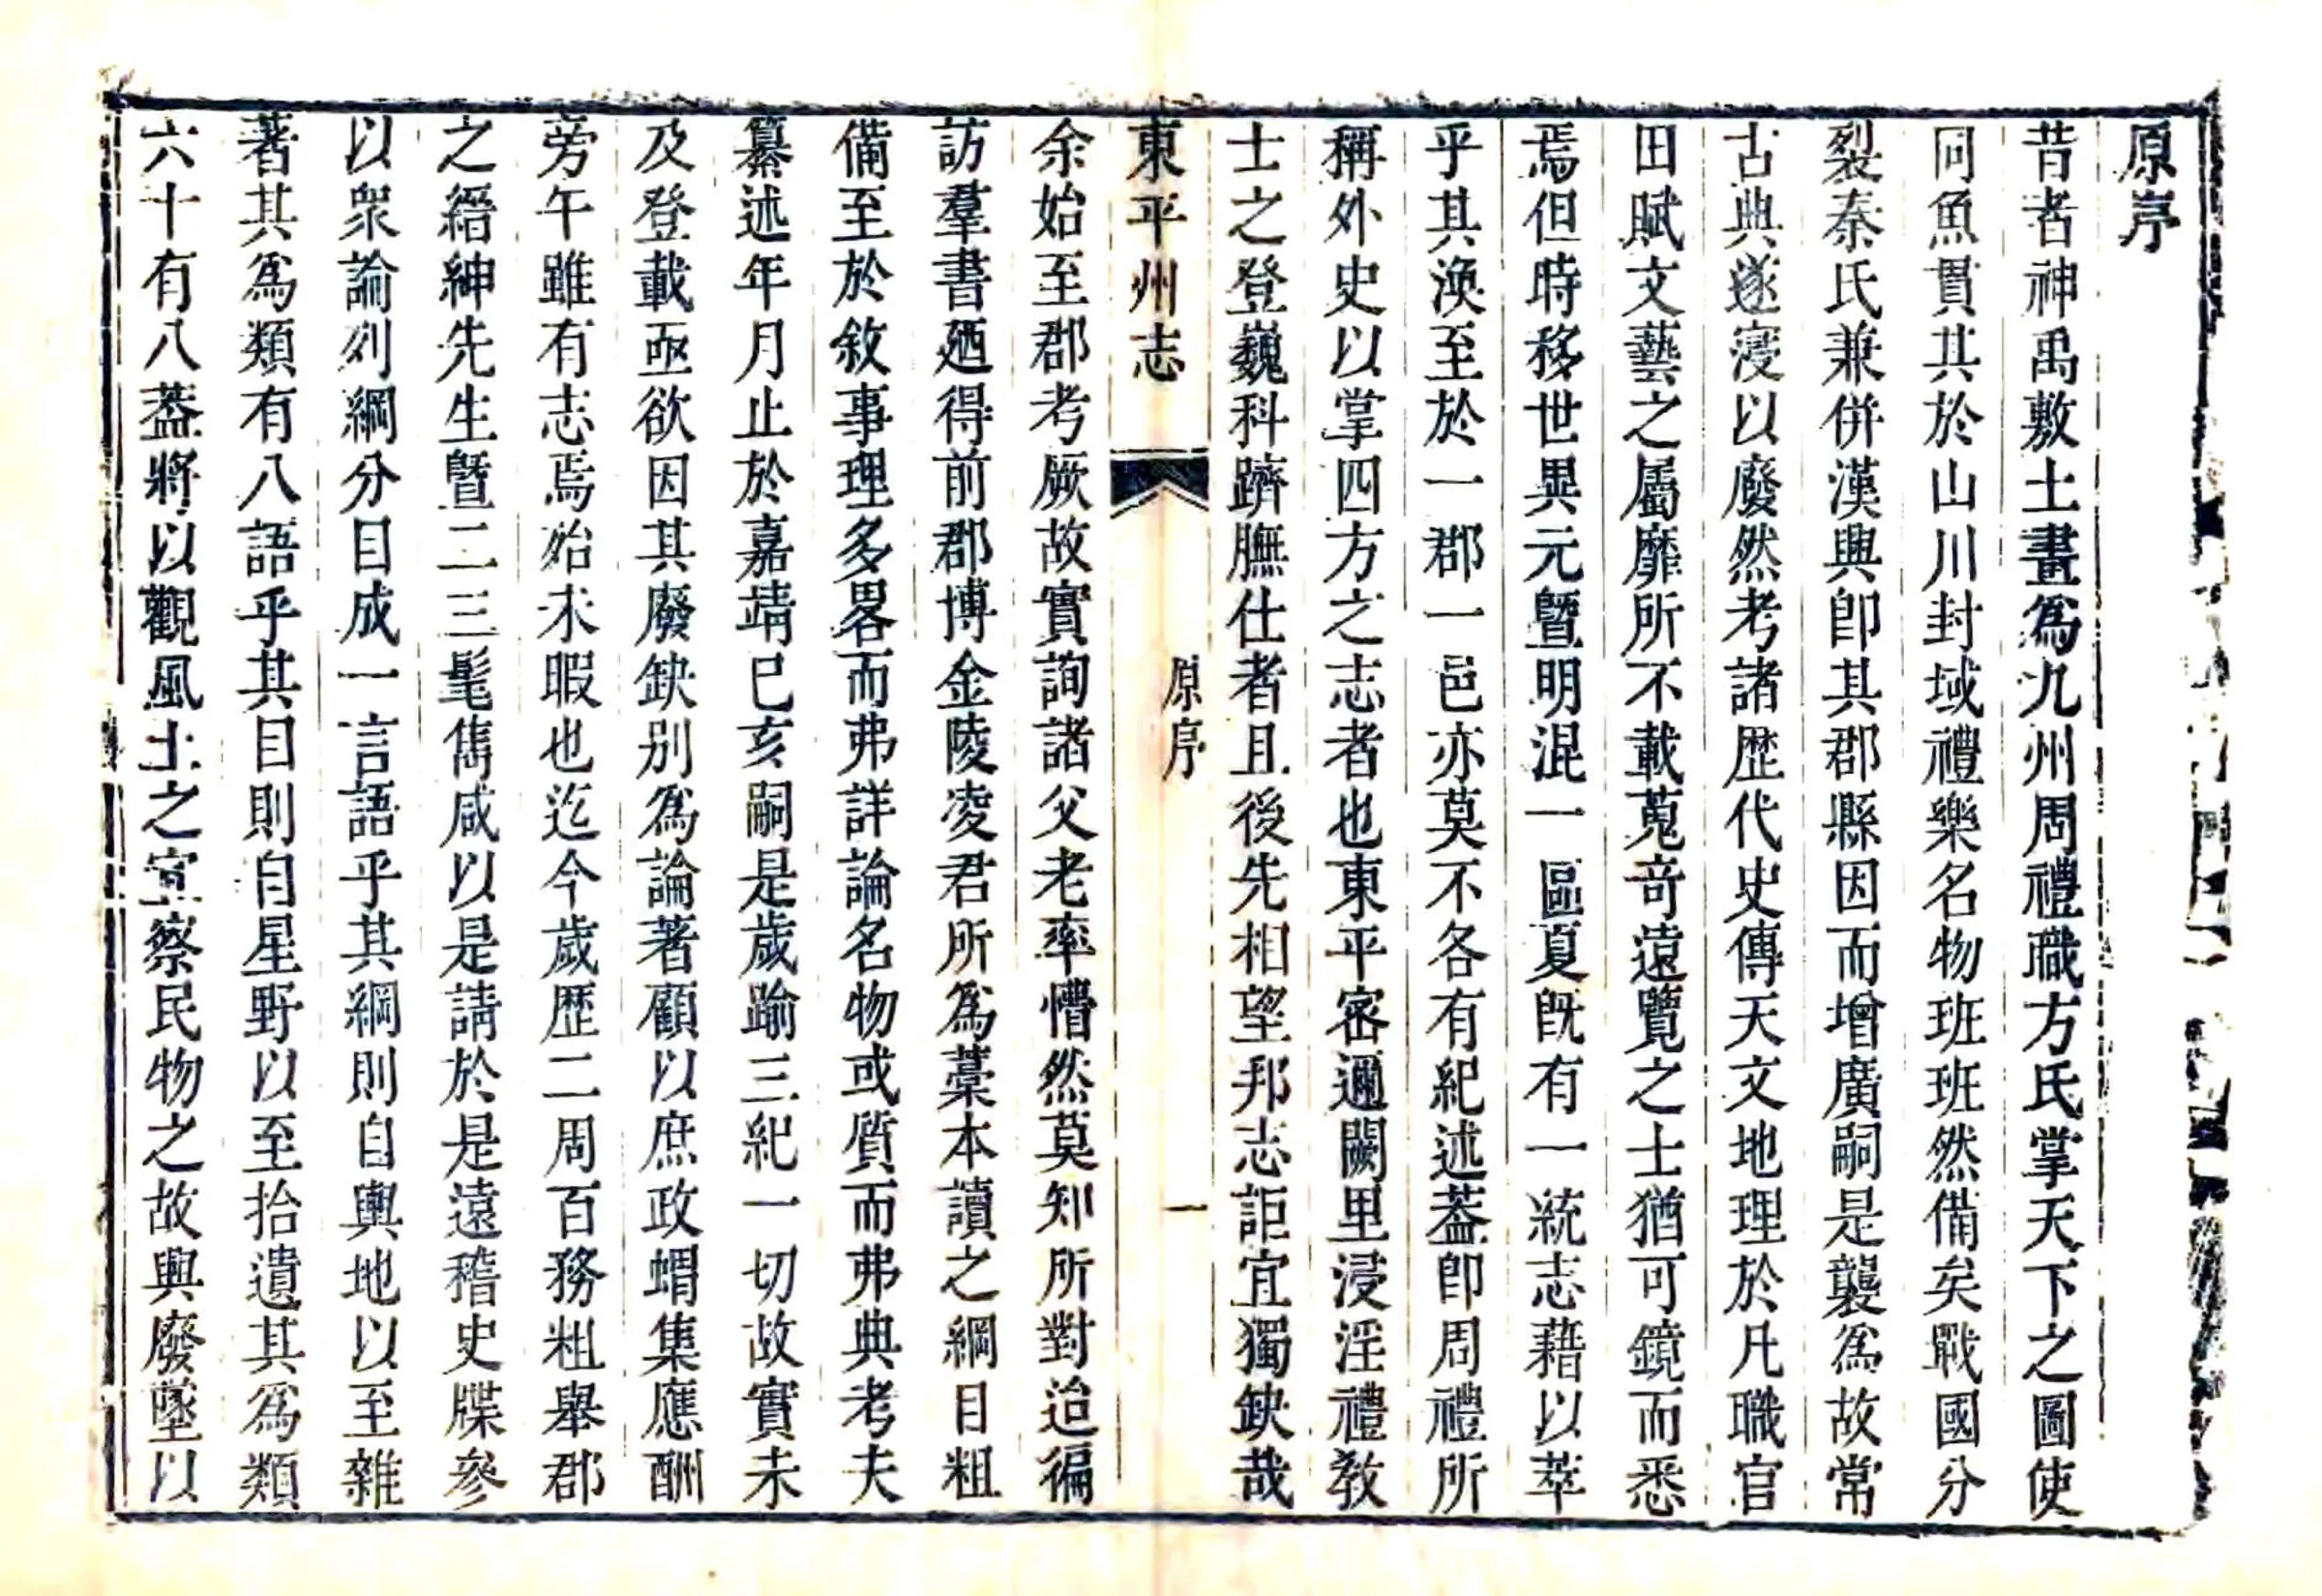 原序
昔者神禹敷土畫爲九州周禮職方氏掌天下之圖使
同魚貫其於山川封域禮樂名物班班然備矣戰國分
裂秦氏兼併漢興卽其郡縣因而增廣嗣是襲爲故常
古典遂寖以廢然考諸歴代史傳天文地理於凡職官
田賦文藝之屬靡所不載蒐竒遠覽之士猶可鏡而悉
焉但時移世異元暨明混一區夏旣有一統志藉以萃
乎其渙至於一郡一邑亦莫不各有紀述葢卽周禮所
稱外史以掌四方之志者也東平密邇闕里浸淫禮教
士之登巍科躋膴仕者且後先相望邦志詎宜獨缺哉
東平州志
原序
一
余始至郡考厥故實詢諸父老率懵然莫知所對迨徧
訪羣書廼得前郡博金陵凌君所爲藁本讀之綱目粗
備至於敘事理多畧而弗詳論名物或質而弗典考夫
纂述年月止於嘉靖已亥嗣是歲踰三紀一切故實未
及登載亟欲因其廢缺别爲論著顧以庶政蝟集應酬
旁午雖有志焉始未暇也迄今歲歴二周百務粗舉郡
之縉紳先生曁二三髦雋咸以是請於是遠稽史牒參
以衆論列綱分目成一言語乎其綱則自輿地以至雜
著其爲類有八語乎其目則自星野以至拾遺其爲類
六十有八葢將以觀風土之宜察民物之故興廢墜以